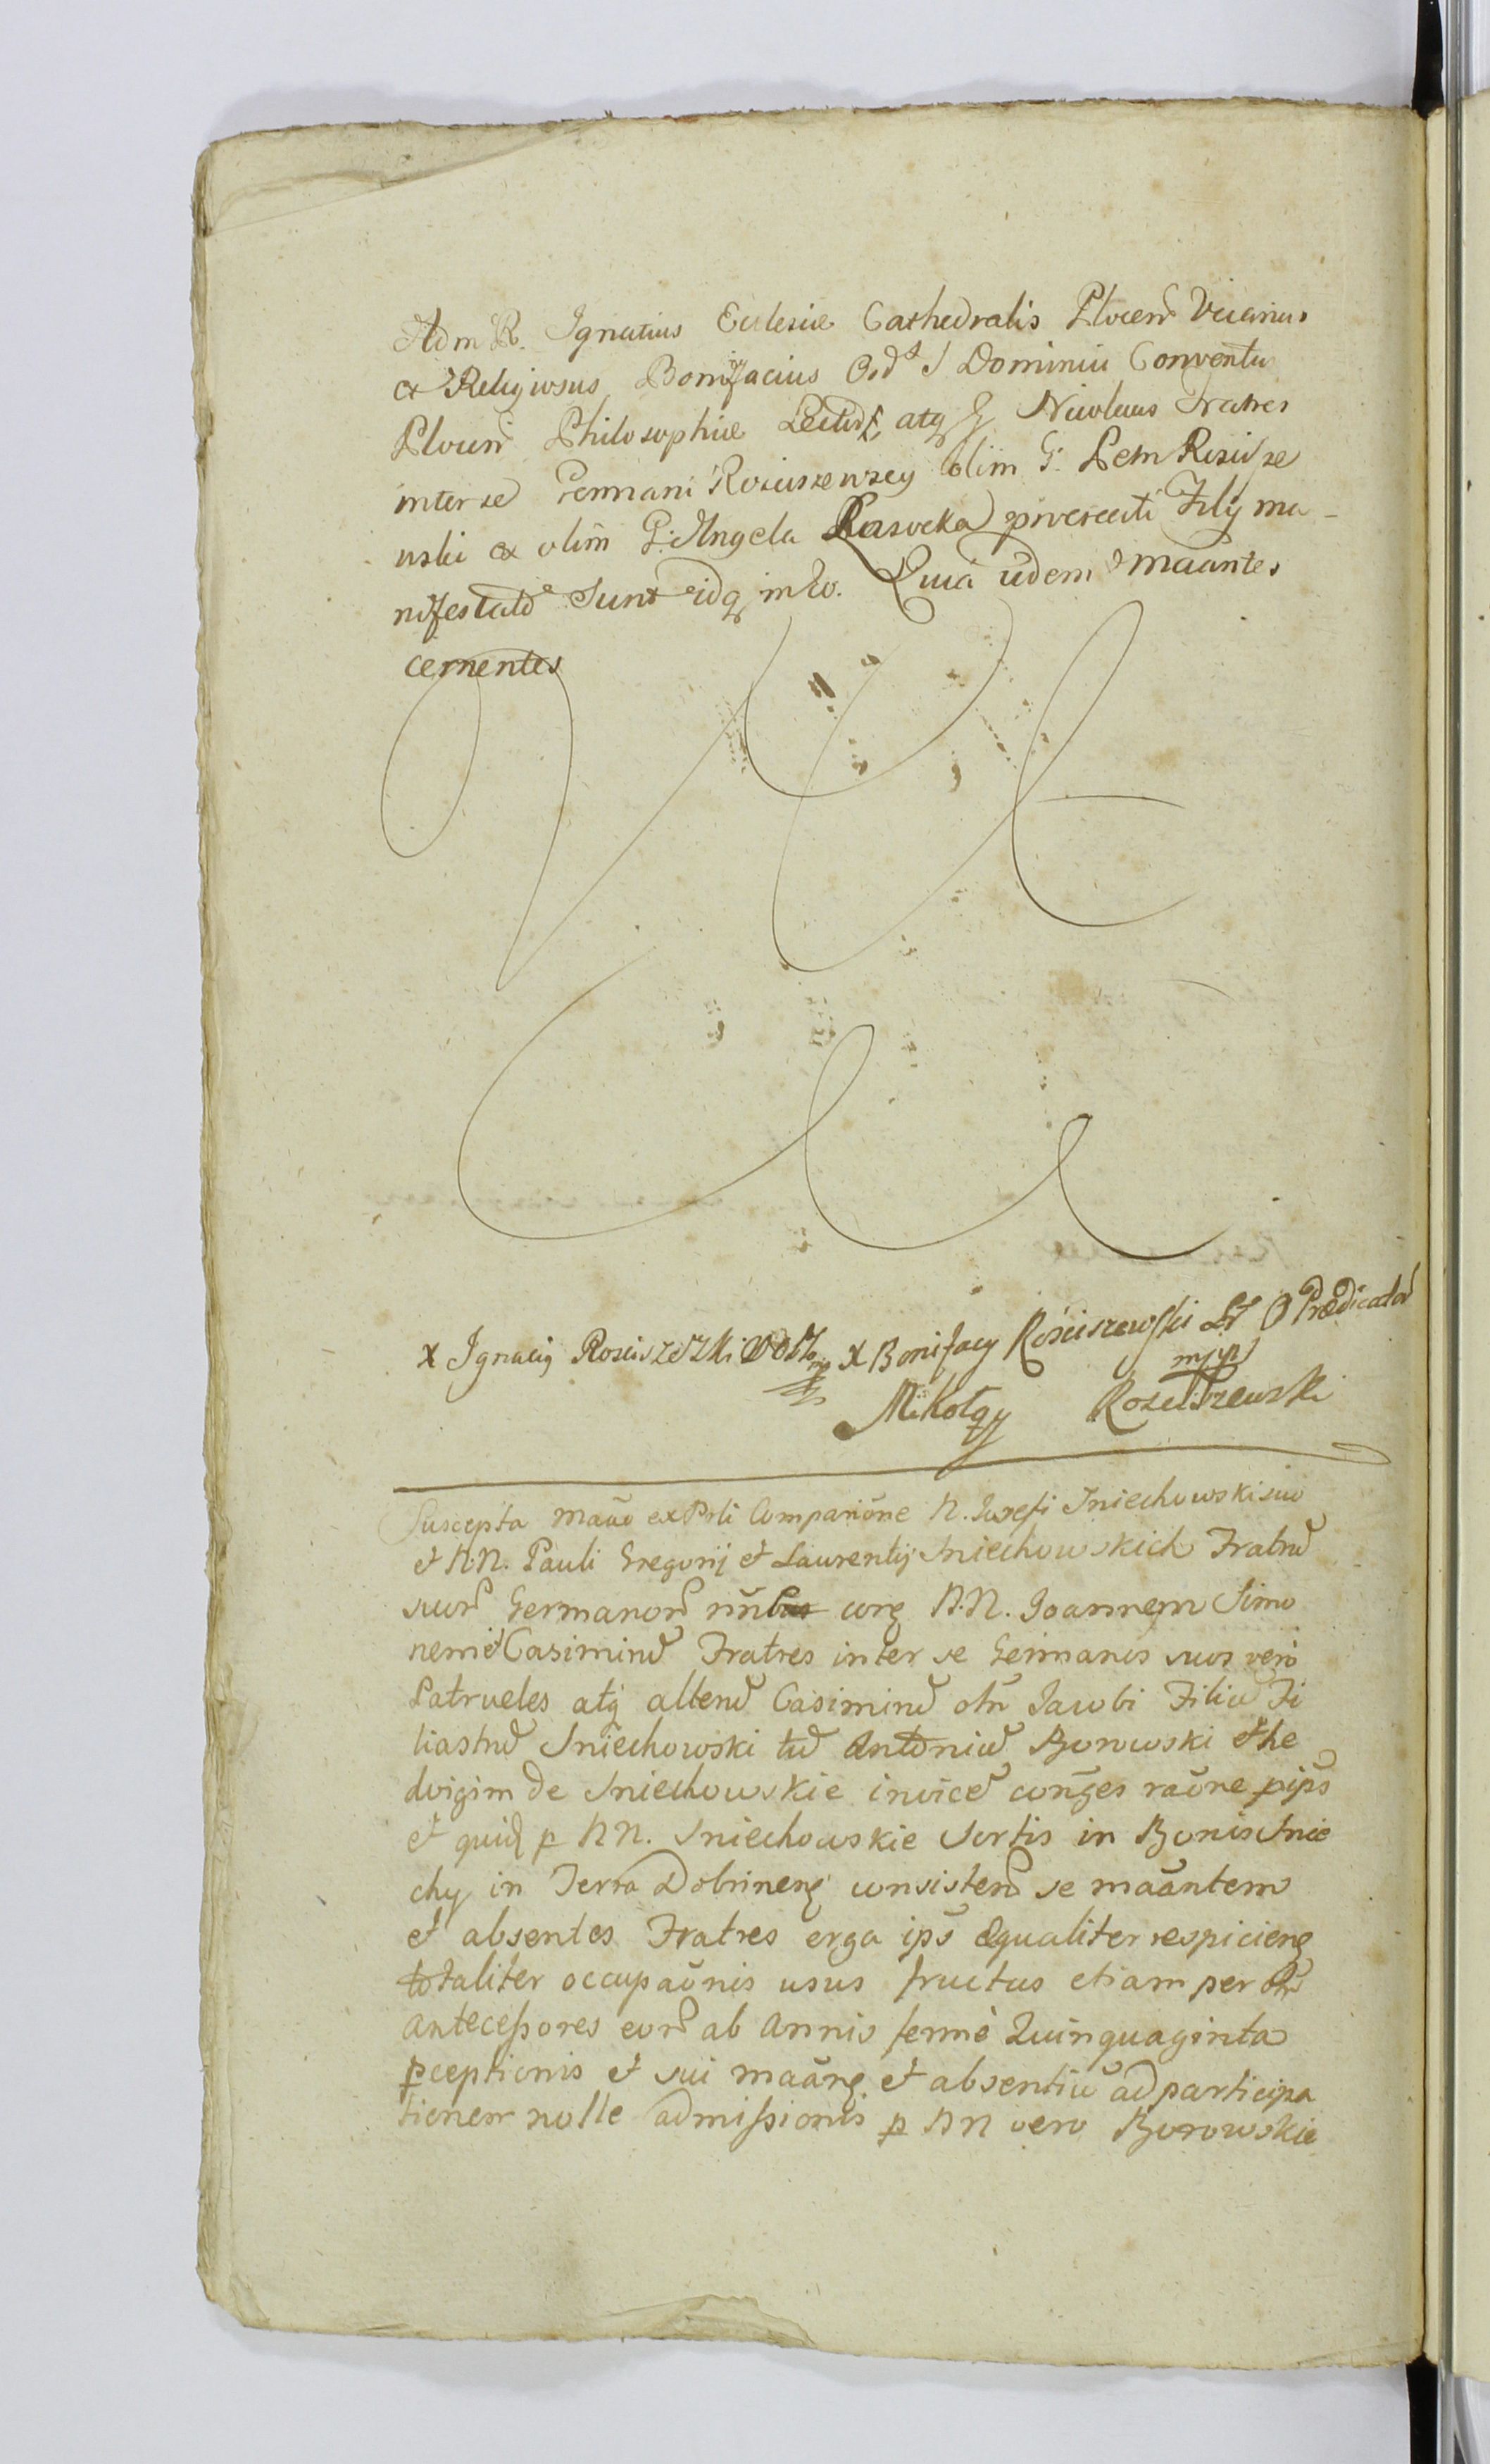 Adm R. Ignatius Eclesiæ Cathedralis Plocen Vicarius
et Religiosus Bonifacius Ord S Dominici Conventu
Plocen Philosophiæ Lector atq G Nicolaus Fratres
inter se Germani Rosciszewscy olim G. Petri Rościsze
wski ex olim G. Angela Rasocka procreati Filÿ ma-
nifestati sunt idq in Eo. Quia iidem maantes
cernentes
x Ignacy Rosciszewski x Bonifacy Rościszewski O Prædicator
mp
Mikołay Rosciszewski
Suscepta maãõ ex Prli Compariõne N. Josefi Sniechowski suo
et N.N. Pauli Gregorij et Laurentij Sniechowskich Fratrũ
suor Germanor nñbus corq N.N. Joannem Simo
nem et Casimirũ Fratres inter se Germanos suos vero
Patrueles atq alterũ Casimirũ olm Jacobi Filiũ Fi
liastrũ Sniechowski tũ Antoniũ Borowski et He
dvigim de Sniechowskie invicẽ conges raõne pips
et quid p NN. Sniechowskie Sortis in Bonis Snie
chy in Terra Dobrinen consisten se maãntem
et absentes Fratres erga ips Equaliter respicien
totaliter occupaõnis usus fructus etiam per olm
Antecessores eor ab Annis fermè Quinquaginta
pceptionis et sui maãn et absentiũ ad participa
tionem nolle admissionis p NN vero Borowskie